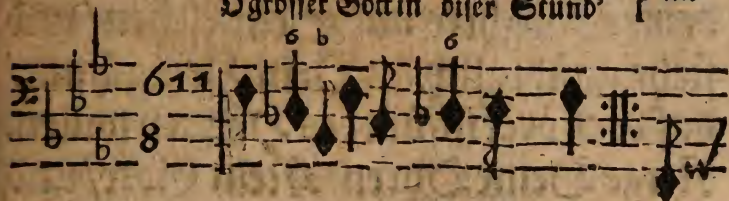 O grosser Gott in diser Stund'
6 b 6
611
8